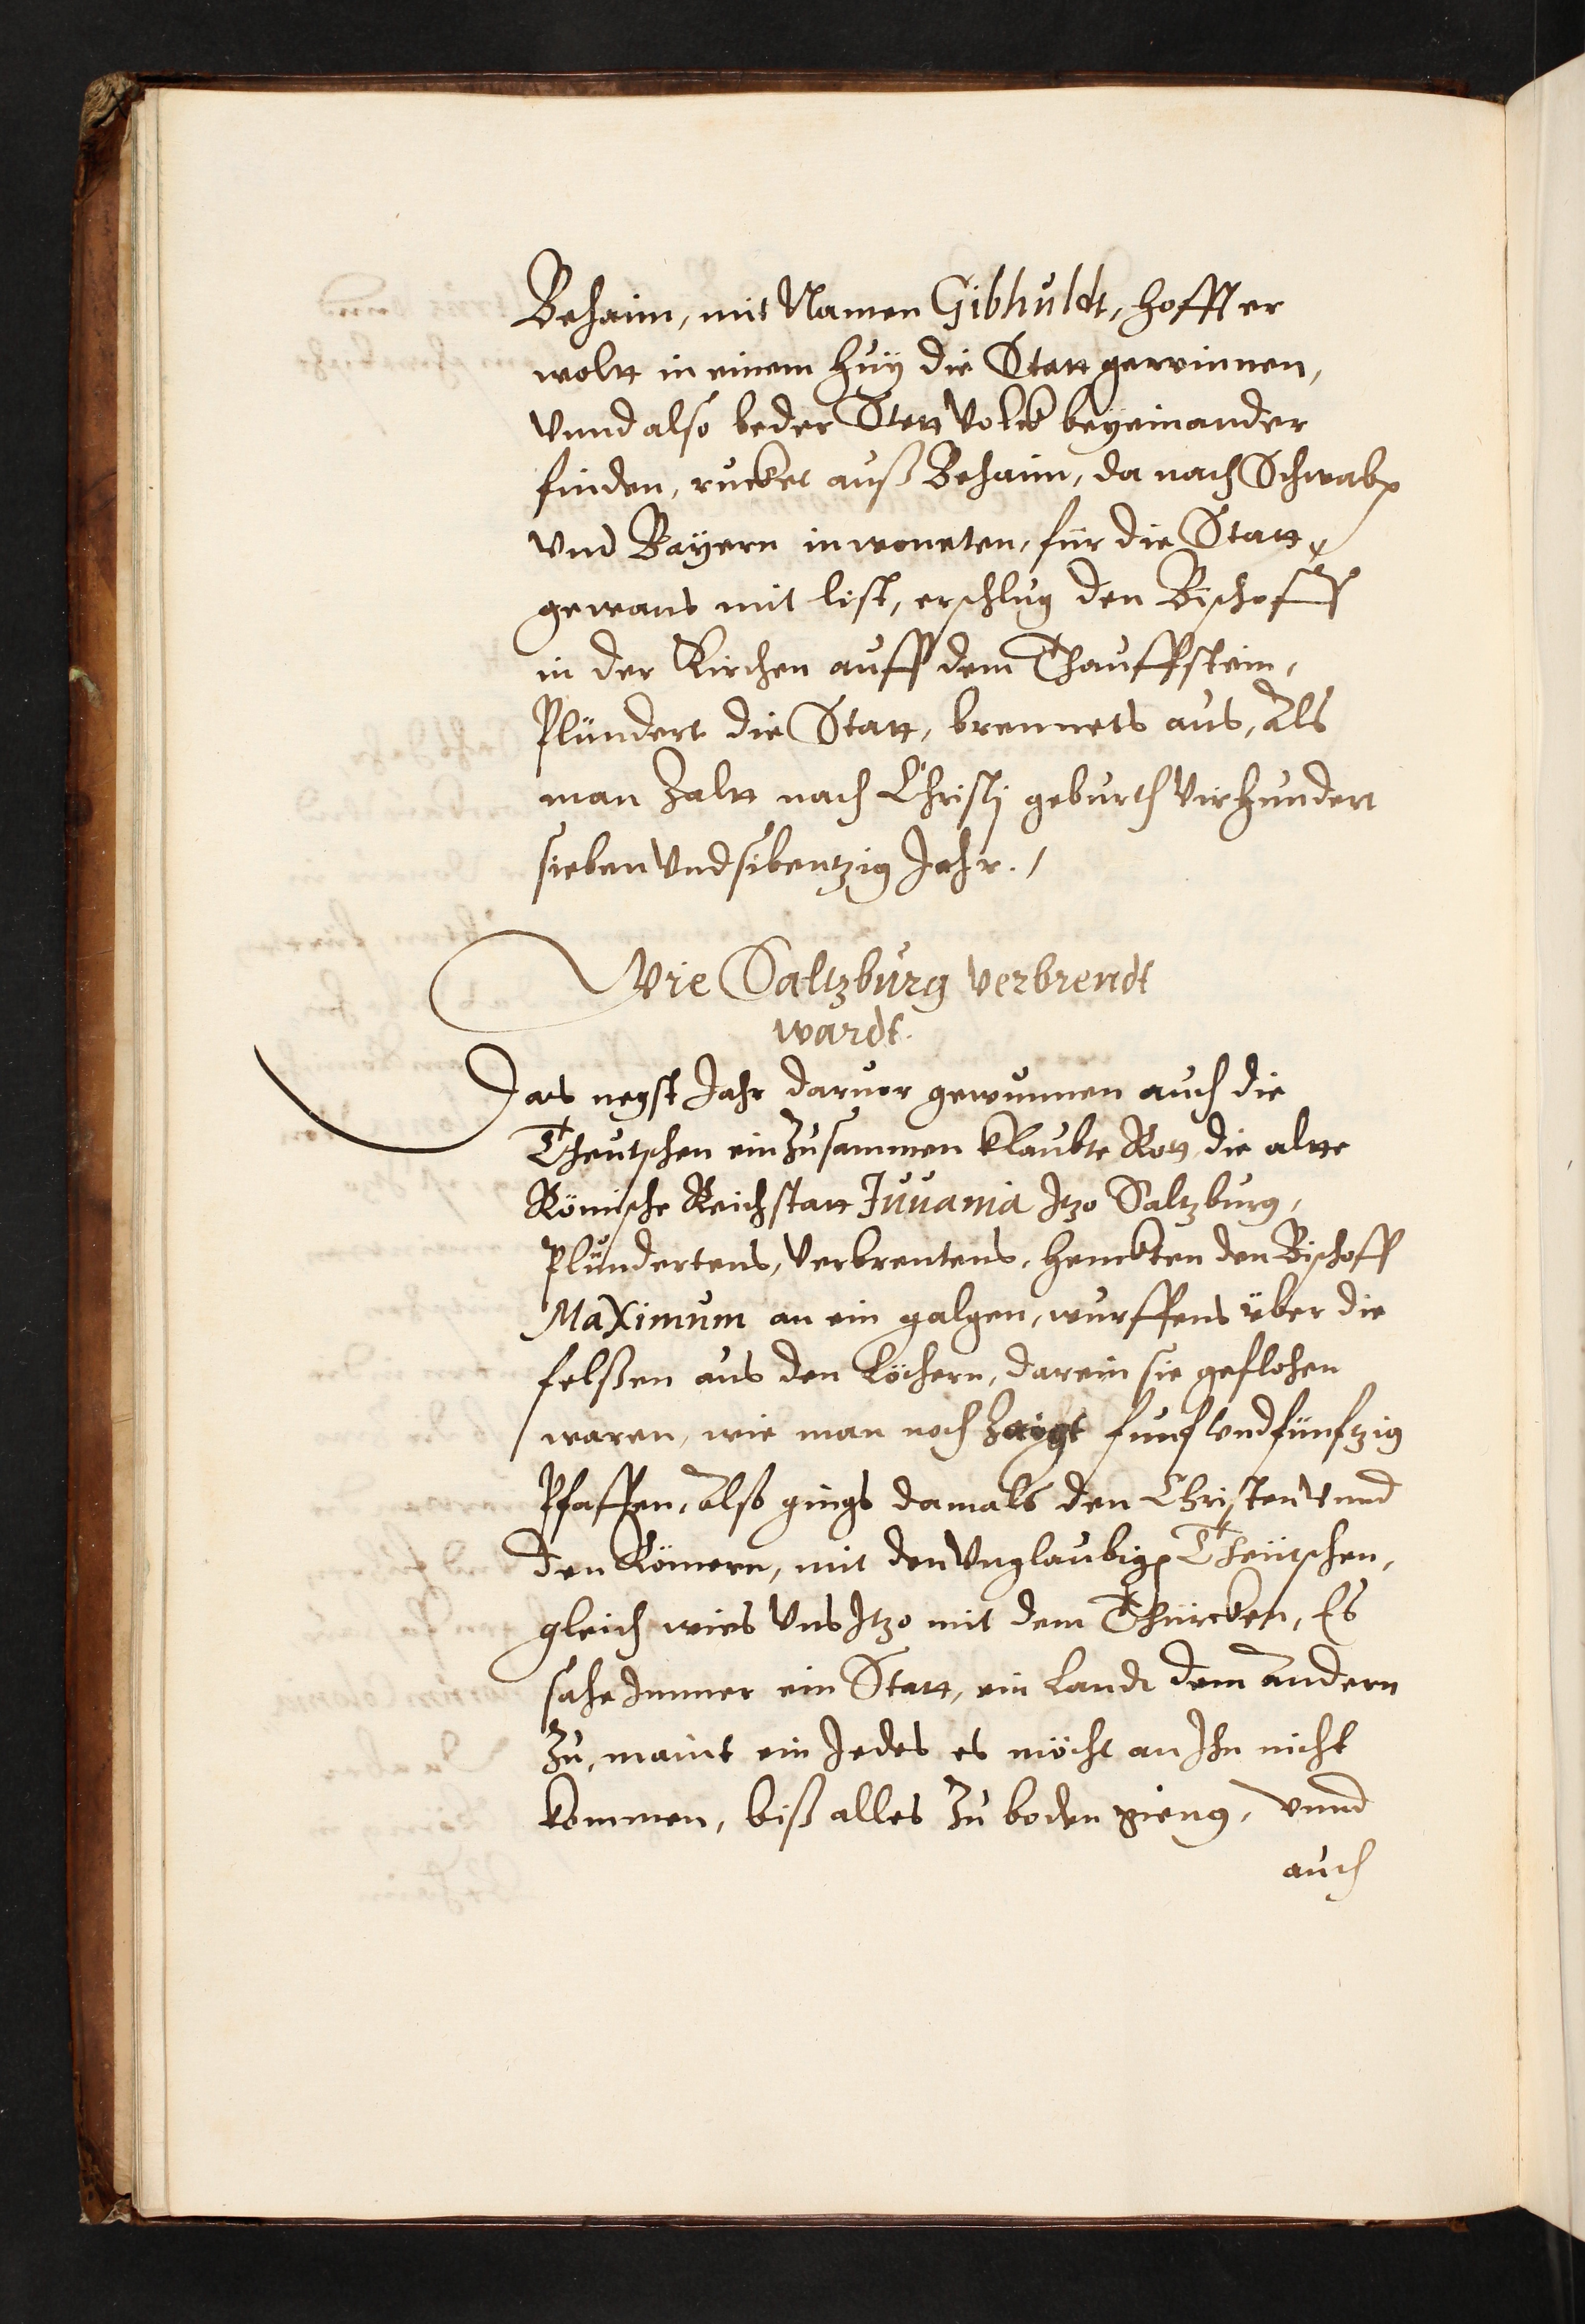 Behaim, mit Namen Gibhuldt, hofft er
woltt in einem huy die Statt gewinnen,
Vnnd also beder Stett Volck beyeinander
finden, rucket auß Behaim, da noch Schwaben
Vnd Bayern inwoneten, für die Statt,
gewans mit list, erschlug den Bischoff
in der Kirchen auff dem Thauffstein,
Plündert die Statt, brennets aus, Als
man Zaltt nach Christj geburth Vierhundert
sieben Vnd sibentzig Jahr.
Wie Saltzburg Verbrendt
wardt.
Das negst Jahr daruor gewunnen auch die
Theutschen ein Zusammen klaubte Rott, die altte
Römische Reichstatt Juuania Jtzo Saltzburg,
Plündertens, Verbrentens, henckten den Bischoff
Maximum an ein galgen, wurffens über die
felßen aus den löchern, darein sie geflohen
waren, wie man noch Zaigt funf Vnd fünftzig
Pfaffen, Also gings damals den Christen Vnnd
den Römern, mit den Vnglaubigen Theütschen,
gleich wies Vns Jtzo mit dem Thürcken, Es
sahe Immer ein Statt, ein Landt dem andern
Zu, maint ein Jedes es möcht an Ihn nicht
kommen, biß alles Zu boden gieng, Vnnd
auch